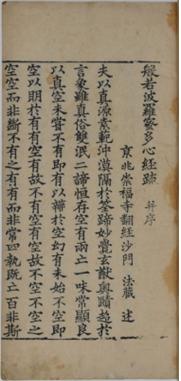 般若波羅蜜多心經䟽 并序
京兆崇福寺翻經沙門 法藏 述
夫以真源素範沖漠隔於筌蹄妙覺玄猷奧賾超於
言象雖真俗雙泯二諦恒存空有兩亡一味常顯良
以真空未甞不有即有以辨於空幻有未始不空即
空以明於有有空有故不有空有空故不空不空之
空空而非斷不有之有有而非常四執既亡百非斯